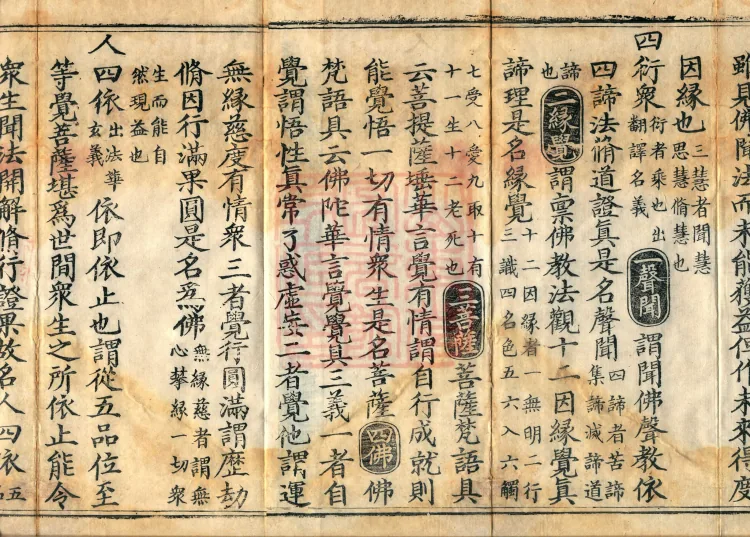 雖見佛聞法而未能獲益但作未來得度
因緣也三慧者聞慧思慧脩慧也
四衍衆衍者乘也出翻譯名義一聲聞謂聞佛聲教依
四諦法脩道證真是名聲聞四諦者苦諦集諦滅諦道
諦也二緣覺謂稟佛教法觀十二因緣覺真
諦理是名緣覺十二因緣者一無明二行三識四名色五六入六觸
七受八愛九取十有十一生十二老死也三菩薩菩薩梵語具
云菩提薩埵華言覺有情謂自行成就則
能覺悟一切有情衆生是名菩薩四佛佛
梵語具云佛陀華言覺覺具三義一者自
覺謂悟性真常了惑虛妄二者覺他謂運
無緣慈度有情衆三者覺行圓滿謂歷劫
脩因行滿果圓是名爲佛無緣慈者謂無心攀緣一切衆
生而能自然現益也
人四依出法華玄義依即依止也謂從五品位至
等覺菩薩堪爲世間衆生之所依止能令
衆生聞法開解脩行證果故名人四依五